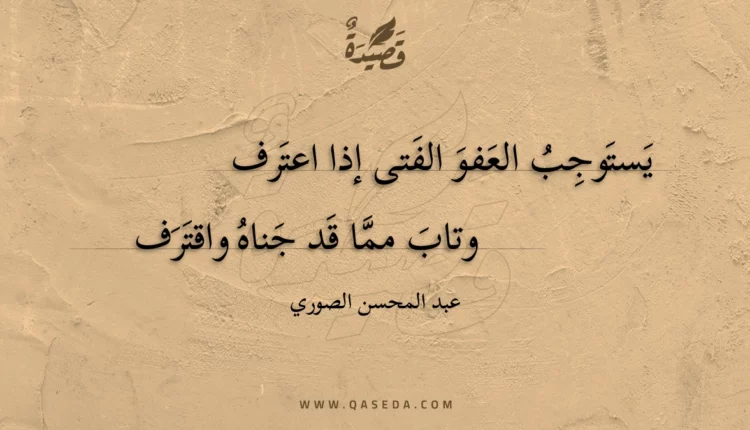 قَصِيدَةٌ
يَستَوجِبُ العَفوَ الفَتى إذا اعتَرَف
وتابَ ممَّا قَد جَناهُ واقتَرَف
عبد المحسن الصوري
WWW.QASEDA.COM